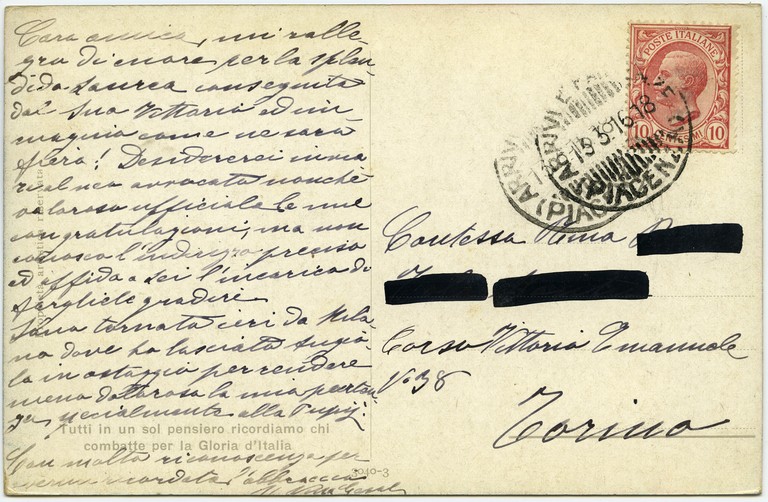 Cara amica, mi ralle
gro di cuore per la splen
dida laurea conseguita
dal Suo Vittorio ed im
magino come ne sarà
fiera! Desidererei inviare
al neo avvocato nonchè
valoroso ufficiale le mie
congratulazioni, ma non
conosco l'indirizzo preciso
ed affido a lei l'incarico di
fargliele gradire
Sono tornata ieri da Mila
no dove ho lasciato
la in ostaggio per rendere
meno dolorosa la mia parten
za specialmente alla
Tutti in un sol pensiero ricordiamo chi
combatte per la Gloria d'Italia
Con molta riconoscenza per
avermi ricordata l'abbraccio
3040-3
POSTE ITALIANE
10 10
ARRIVI
19 3 16 18
(PIACENZA)
Contessa
Corso Vittorio Emanuele
No 38
Torino